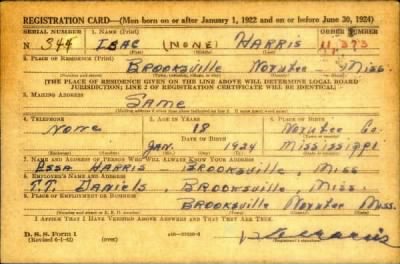 REGISTRATION CARD—(Men born on or after January 1, 1922 and on or before June 30, 1924)
SERIAL NUMBER 1. NAME (Print) ORDER NUMBER
N 344 ISAC (NONE) HARRIS 11,373
(First) (Middle) (Last)
2. PLACE OF RESIDENCE (Print)
Brooksville Noxubee Miss.
(THE PLACE OF RESIDENCE GIVEN ON THE LINE ABOVE WILL DETERMINE LOCAL BOARD
JURISDICTION; LINE 2 OF REGISTRATION CERTIFICATE WILL BE IDENTICAL)
3. MAILING ADDRESS
Same
4. TELEPHONE 5. AGE IN YEARS 6. PLACE OF BIRTH
None 18 Noxubee Co.
DATE OF BIRTH
Jan. 1924 Mississippi
7. NAME AND ADDRESS OF PERSON WHO WILL ALWAYS KNOW YOUR ADDRESS
Essa Harris - Brooksville, Miss
8. EMPLOYER'S NAME AND ADDRESS
T.T. Daniels, Brooksville, Miss.
9. PLACE OF EMPLOYMENT OR BUSINESS
Brooksville Noxubee Miss.
I AFFIRM THAT I HAVE VERIFIED ABOVE ANSWERS AND THAT THEY ARE TRUE.
D. S. S. Form 1
(Revised 6-1-42) (over)
(Registrant's signature)